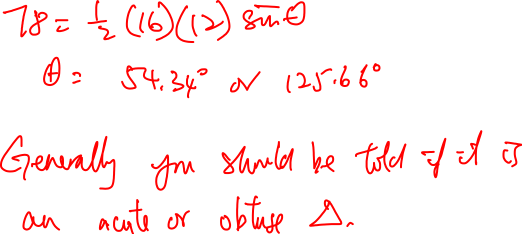 78 = 1/2 (16)(12) sinθ
θ = 54.34° or 125.66°
Generally you should be told if it is
an acute or obtuse Δ.